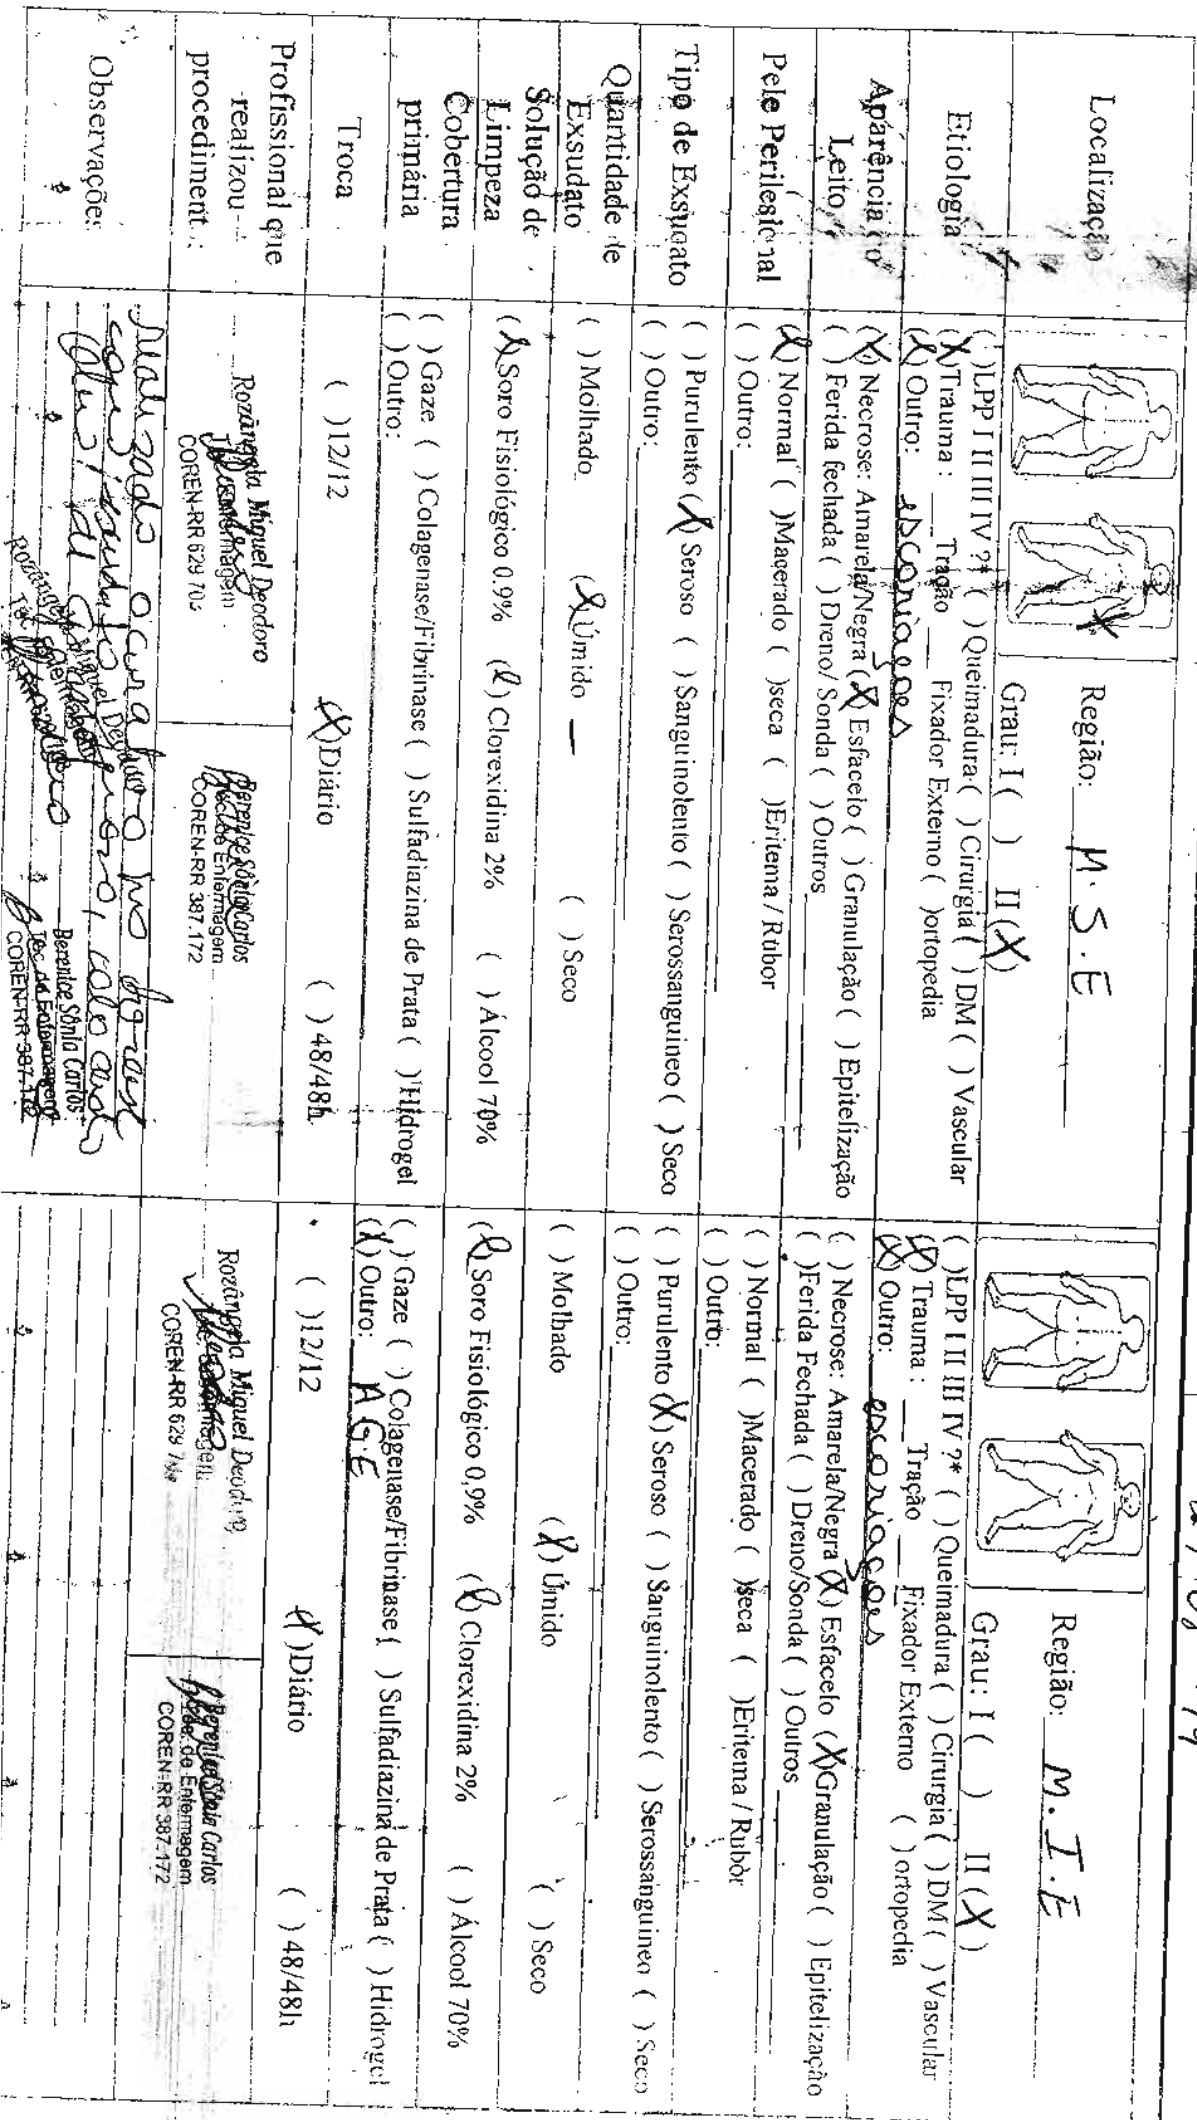 Localização
Região: M.S.E
Grau: I ( ) II (X)
Região: M.I.E
Grau: I ( ) II (X)
Etiologia
( )LPP I II III IV ?* ( ) Queimadura ( ) Cirurgia ( ) DM ( ) Vascular
(X)Trauma : ___Tração ___ Fixador Externo ( )ortopedia
(X) Outro: escoriações
( )LPP I II III IV ?* ( ) Queimadura ( ) Cirurgia ( ) DM ( ) Vascular
(X) Trauma : ___Tração ___ Fixador Externo ( ) ortopedia
(X) Outro: escoriações
Aparência do
Leito
(X) Necrose: Amarela/Negra (X) Esfacelo ( ) Granulação ( ) Epitelização
( ) Ferida fechada ( ) Dreno/ Sonda ( ) Outros
( ) Necrose: Amarela/Negra (X) Esfacelo (X)Granulação ( ) Epitelização
( )Ferida Fechada ( ) Dreno/Sonda ( ) Outros
Pele Perilesional
(X) Normal ( )Macerado ( )seca ( )Eritema / Rubor
( ) Outro:
( ) Normal ( )Macerado ( )seca ( )Eritema / Rubor
( ) Outro:
Tipo de Exsudato
( ) Purulento (X) Seroso ( ) Sanguinolento ( ) Serossanguineo ( ) Seco
( ) Outro:
( ) Purulento (X) Seroso ( ) Sanguinolento ( ) Serossanguineo ( ) Seco
( ) Outro:
Quantidade de
Exsudato
( ) Molhado (X)Úmido ( ) Seco
( ) Molhado (X) Úmido ( ) Seco
Solução de
Limpeza
(X)Soro Fisiológico 0.9% (X) Clorexidina 2% ( ) Álcool 70%
(X) Soro Fisiológico 0,9% (X) Clorexidina 2% ( ) Álcool 70%
Cobertura
primária
( ) Gaze ( ) Colagenase/Fibrinase ( ) Sulfadiazina de Prata ( ) Hidrogel
( ) Outro:
( ) Gaze ( ) Colagenase/Fibrinase ( ) Sulfadiazina de Prata ( ) Hidrogel
(X) Outro: A G E
Troca
( )12/12 (X)Diário ( ) 48/48h
( )12/12 (X)Diário ( ) 48/48h
Profissional que
realizou
procediment :
Rozângela Miguel Deodoro
COREN-RR 629 70
Berenice Sônia Carlos
Téc de Enfermagem
COREN-RR 387.172
Rozângela Miguel Deodoro
COREN-RR 629
Berenice Sônia Carlos
Téc de Enfermagem
COREN-RR 387.172
Observações
Realizado o curativo
com
Rozângela Miguel Deodoro
Berenice Sônia Carlos
Téc de Enfermagem
COREN-RR 387.172